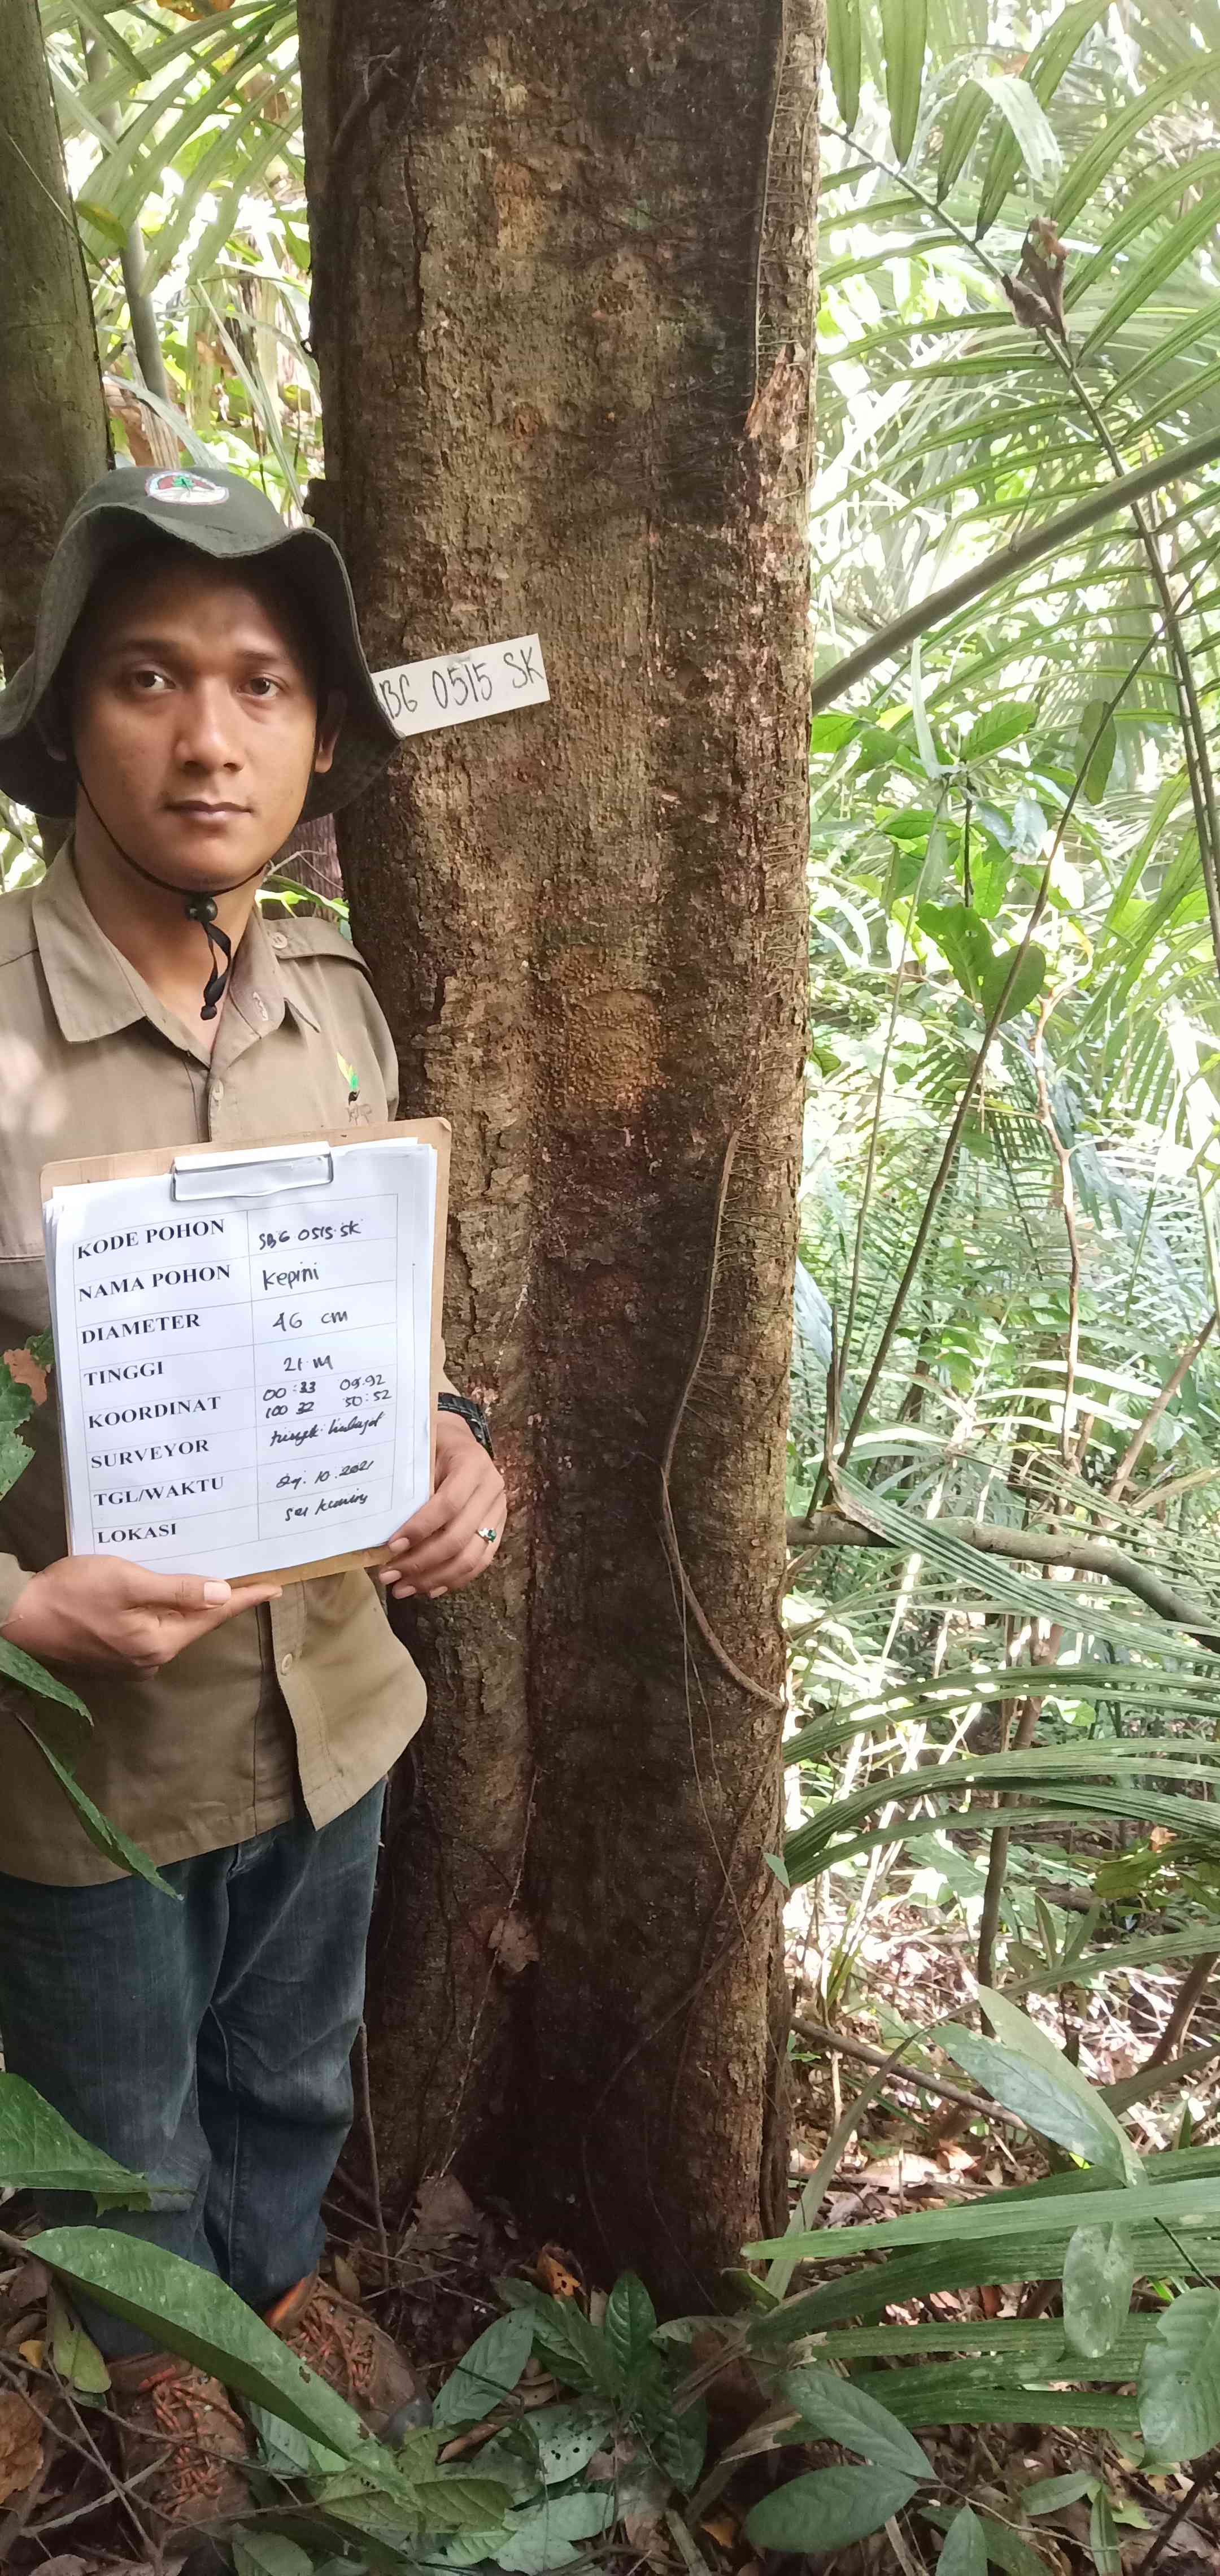 BG 0515 SK
KODE POHON SBG 0515 SK
NAMA POHON Kepini
DIAMETER 46 cm
TINGGI 21 M
KOORDINAT 00:33 09.92
100 32 50:52
SURVEYOR
TGL/WAKTU 10.2021
LOKASI